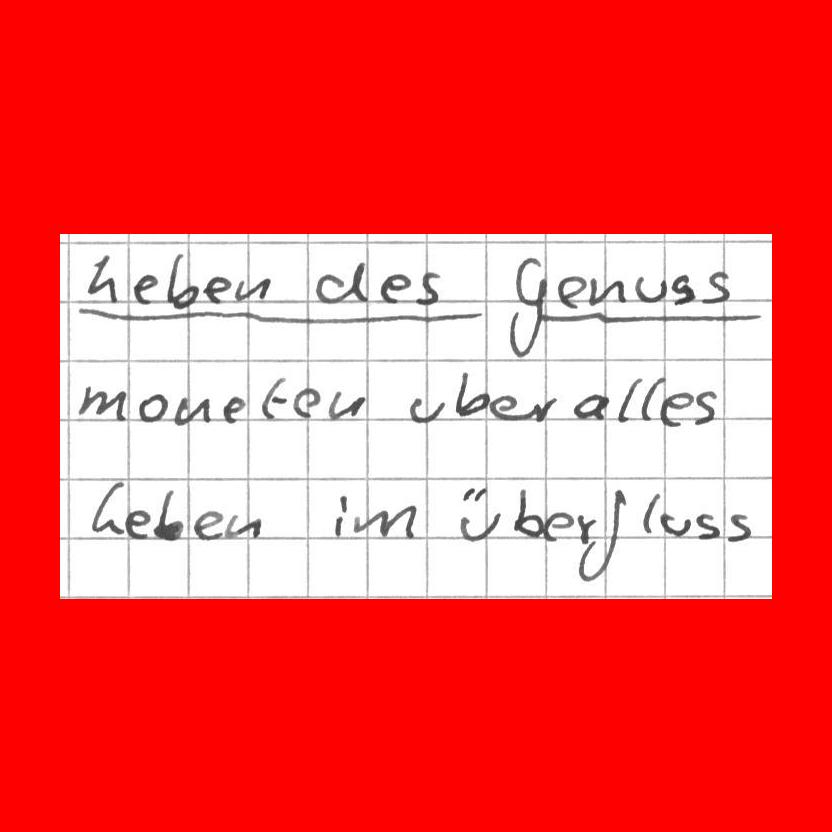 heben des Genuss
moneten uber alles
heben im überfluss